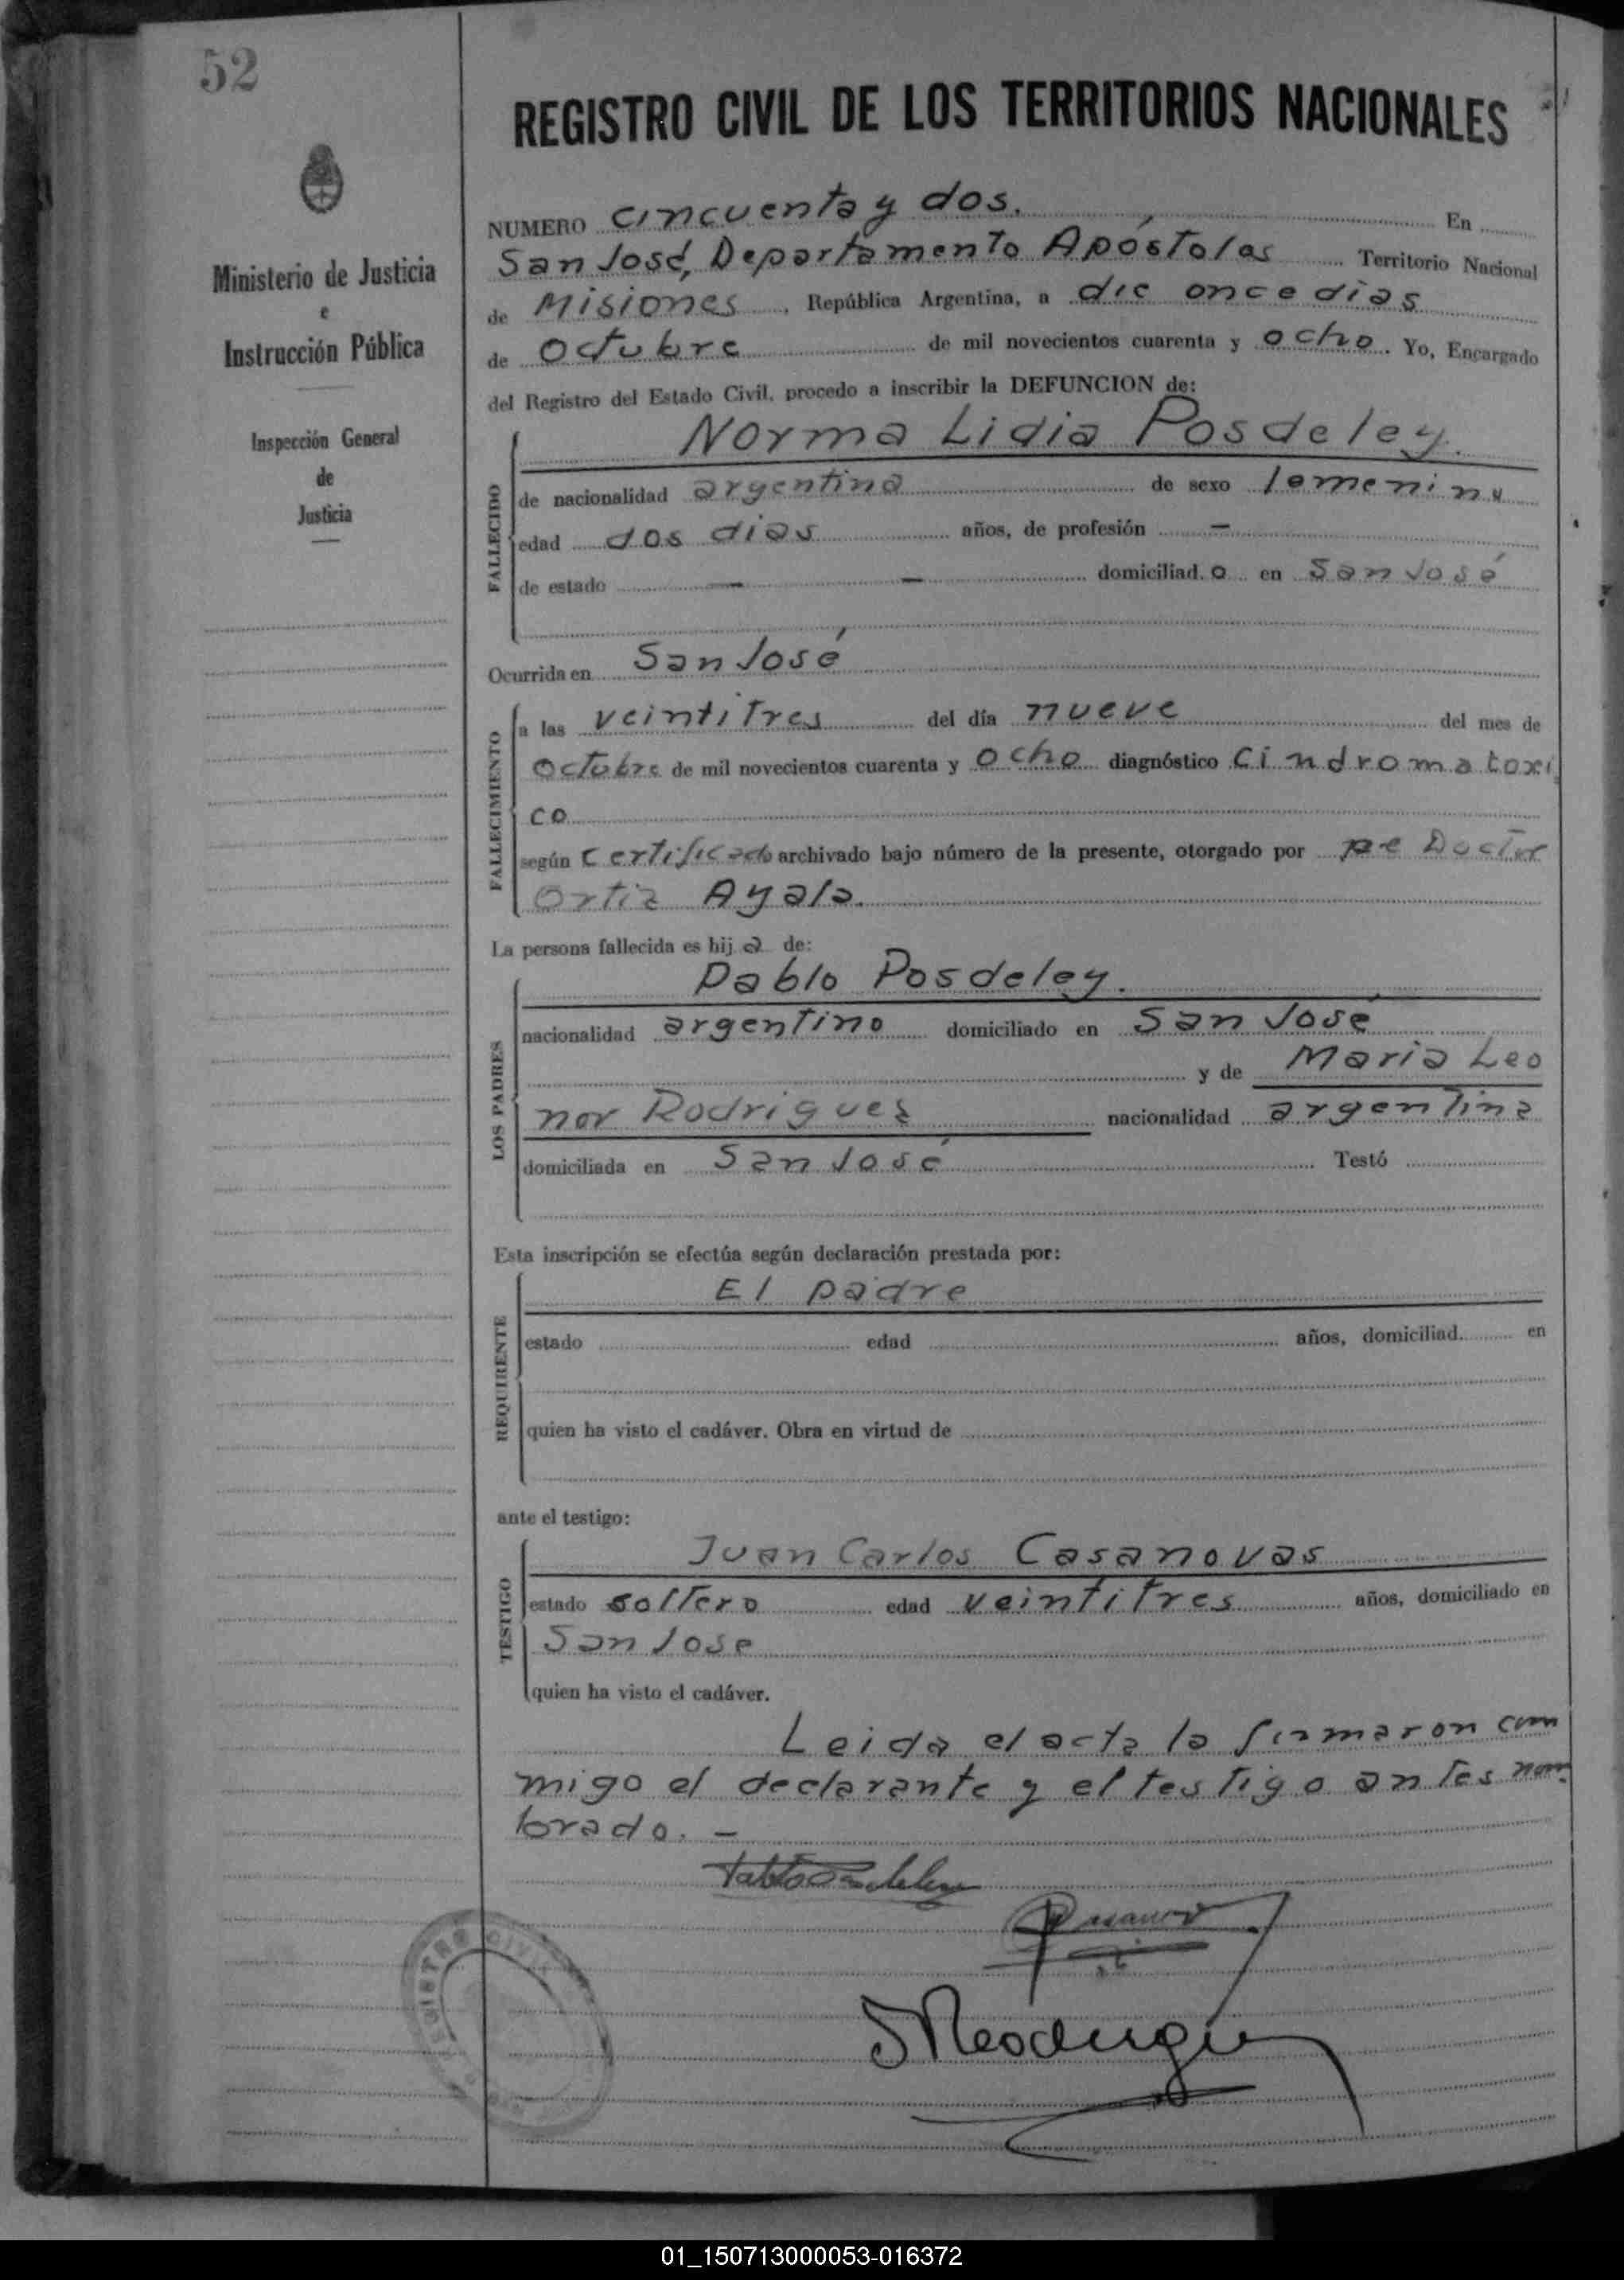 52
REGISTRO CIVIL DE LOS TERRITORIOS NACIONALES
Ministerio de Justicia
e
Instrucción Pública
Inspección General
de
Justicia
NUMERO cincuenta y dos. En
San José, Departamento Apóstoles Territorio Nacional
de Misiones, República Argentina, a once dias
de Octubre de mil novecientos cuarenta y ocho. Yo, Encargado
del Registro del Estado Civil, procedo a inscribir la DEFUNCION de:
Norma Lidia Posdeley.
FALLECIDO
de nacionalidad argentina de sexo femenino
edad dos dias años, de profesión -
de estado - - domiciliad.o en San José
Ocurrida en San José
FALLECIMIENTO
a las veintitres del día nueve del mes de
Octubre de mil novecientos cuarenta y ocho diagnóstico Cindroma toxi
co
según certificado archivado bajo número de la presente, otorgado por Doctor
Ortiz Ayala.
La persona fallecida es hij a de:
LOS PADRES
Pablo Posdeley.
nacionalidad argentino domiciliado en San José
y de Maria Leo
nor Rodrigues nacionalidad argentina
domiciliada en San José Testó
Esta inscripción se efectúa según declaración prestada por:
REQUIRENTE
El padre
estado edad años, domiciliad. en
quien ha visto el cadáver. Obra en virtud de
ante el testigo:
TESTIGO
Juan Carlos Casanovas
estado soltero edad veintitres años, domiciliado en
San Jose
quien ha visto el cadáver.
Leida el acta la firmaron con
migo el declarante y el testigo antes nom
brado. -
REGISTRO CIVIL
01_150713000053-016372